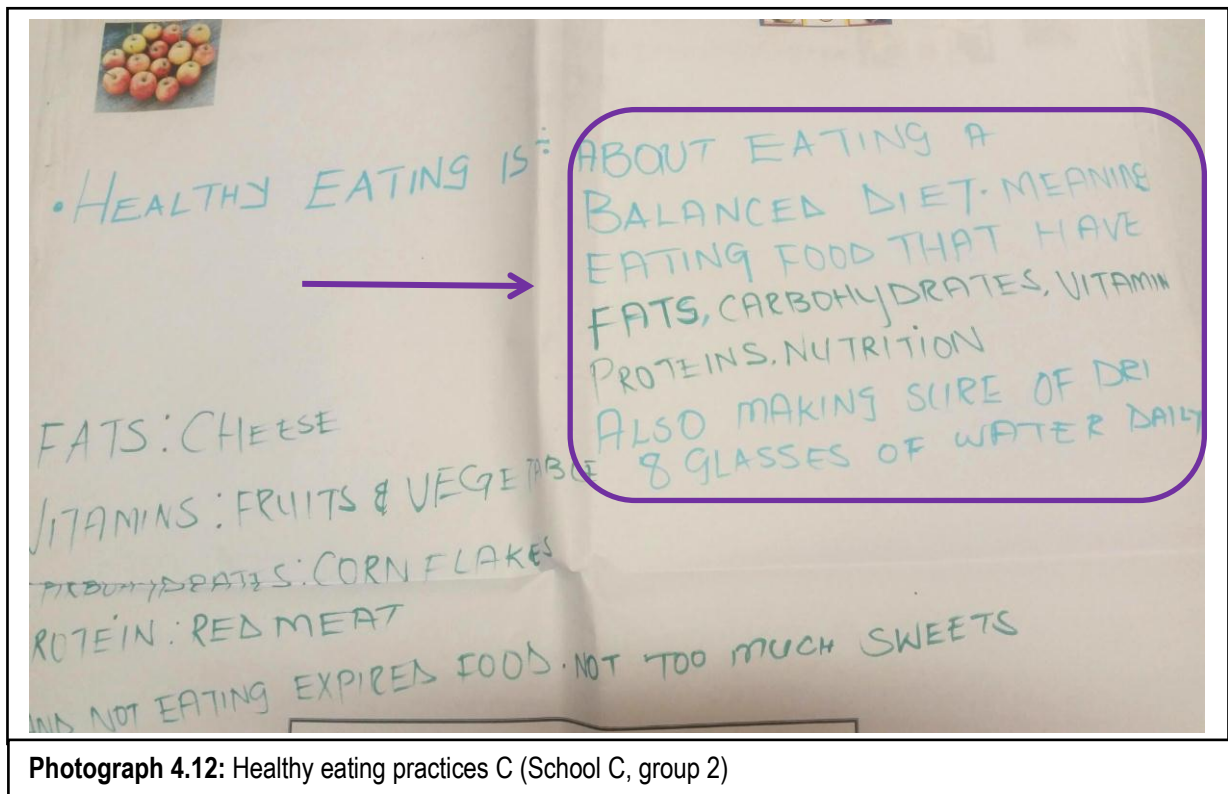 • HEALTHY EATING IS : ABOUT EATING A
BALANCED DIET. MEANING
EATING FOOD THAT HAVE
FATS, CARBOHYDRATES, VITAMIN
PROTEINS. NUTRITION
ALSO MAKING SURE OF DRI
8 GLASSES OF WATER DAILY
FATS : CHEESE
VITAMINS : FRUITS & VEGETABLE
CARBOHYDRATES : CORN FLAKES
PROTEIN : RED MEAT
AND NOT EATING EXPIRED FOOD. NOT TOO MUCH SWEETS
Photograph 4.12: Healthy eating practices C (School C, group 2)